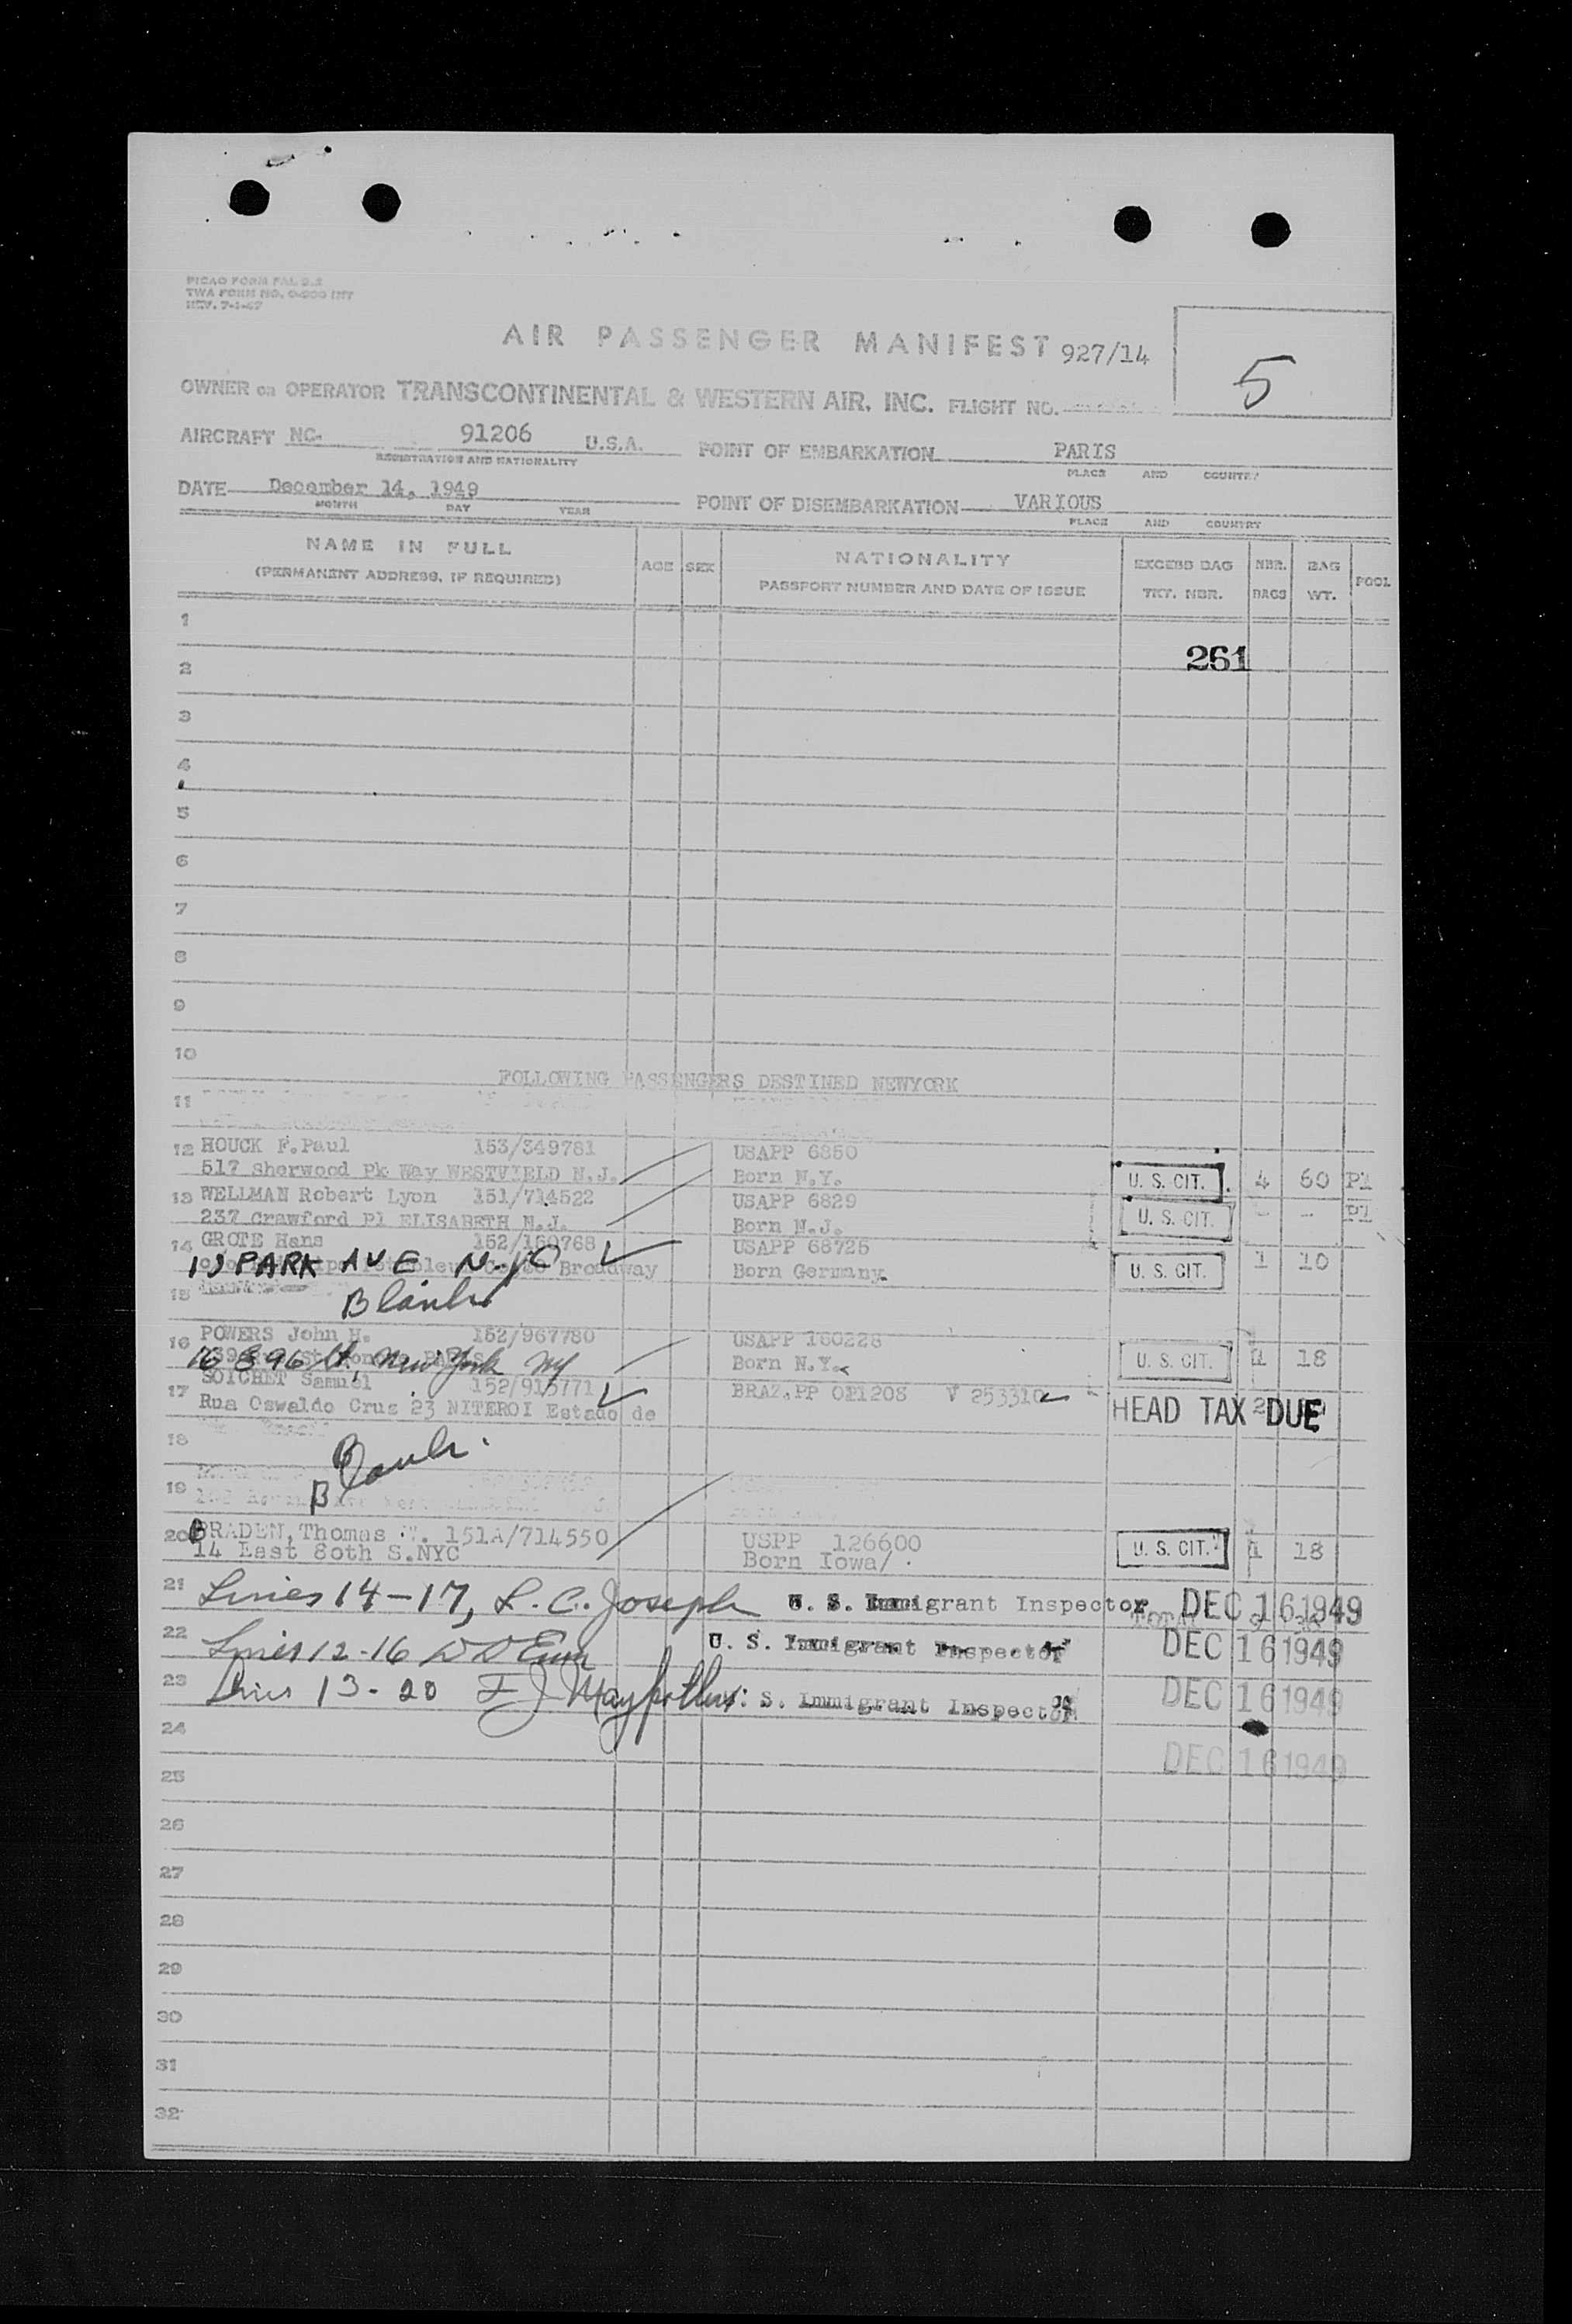 PICAO FORM FAL
TWA FORM NO.
REV. 7-1-47
AIR PASSENGER MANIFEST 927/14
5
OWNER OR OPERATOR TRANSCONTINENTAL & WESTERN AIR, INC. FLIGHT NO.
AIRCRAFT NC- 91206 U.S.A. POINT OF EMBARKATION PARIS
REGISTRATION AND NATIONALITY PLACE AND COUNTRY
DATE December 14, 1949 POINT OF DISEMBARKATION VARIOUS
MONTH DAY YEAR PLACE AND COUNTRY
NAME IN FULL
(PERMANENT ADDRESS, IF REQUIRED)
AGE SEX
NATIONALITY
PASSPORT NUMBER AND DATE OF ISSUE
EXCESS BAG
TKT. NBR.
NBR.
BAGS
BAG
WT.
POOL
1
261
2
3
4
5
6
7
8
9
10
FOLLOWING PASSENGERS DESTINED NEWYORK
11
12 HOUCK F.Paul 153/349781 USAPP 6850
517 Sherwood Pk Way WESTVIELD N.J. Born N.Y. U. S. CIT. 4 60 P1
13 WELLMAN Robert Lyon 151/714522 USAPP 6829
237 Crawford Pl ELISABETH N.J. Born N.J. U. S. CIT. - - P1
14 GROTE Hans 152/160768 USAPP 68725
PARK AVE N.Y.C Broadway Born Germany. U. S. CIT. 1 10
15 Blank
16 POWERS John H. 152/967780 USAPP 160228
New York NY Born N.Y. U. S. CIT. 1 18
17 SOICHET Samuel 152/915771 BRAZ.PP 011208 V 253310
Rua Oswaldo Crus 23 NITEROI Estado de HEAD TAX DUE
18
Blank
19
B
20 BRADEN, Thomas W. 151A/714550 USPP 126600
14 East 80th S.NYC Born Iowa/ U. S. CIT. 1 18
21 Lines 14-17, L. C. Joseph U. S. Immigrant Inspector DEC 16 1949
TOTAL
22 Lines 12-16 U. S. Immigrant Inspector DEC 16 1949
23 Lines 13-20 U. S. Immigrant Inspector DEC 16 1949
24
DEC 16 1949
25
26
27
28
29
30
31
32